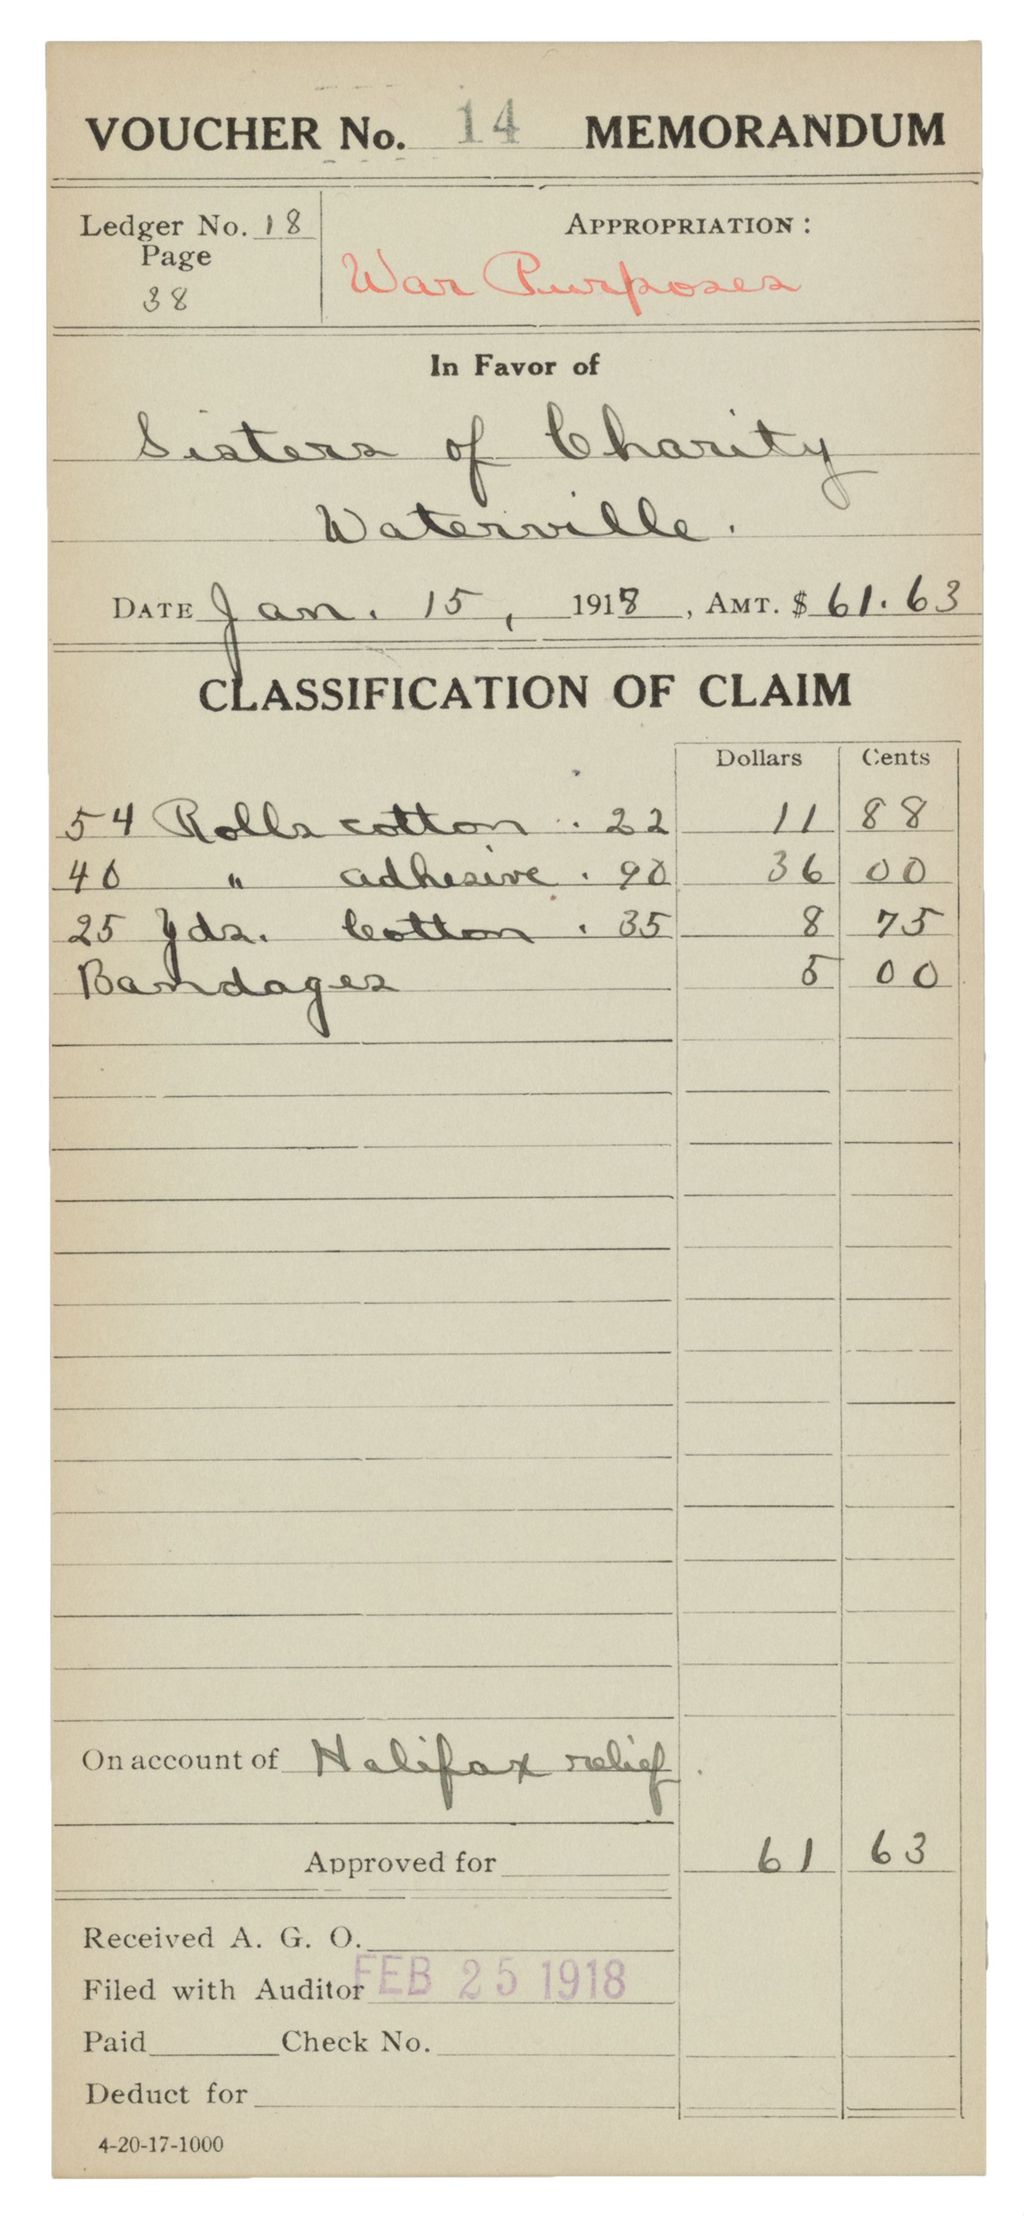 VOUCHER No. 14 MEMORANDUM
Ledger No. 18
Page
38
APPROPRIATION:
War Purposes
In Favor of
Sisters of Charity
Waterville.
DATE Jan. 15, 1918, AMT. $ 61.63
CLASSIFICATION OF CLAIM
Dollars Cents
54 Rolls cotton .22 11 88
40 " adhesive .90 36 00
25 Yds. Cotton .35 8 75
Bandages 5 00
On account of Halifax relief.
Approved for 61 63
Received A. G. O.
Filed with Auditor FEB 25 1918
Paid Check No.
Deduct for
4-20-17-1000